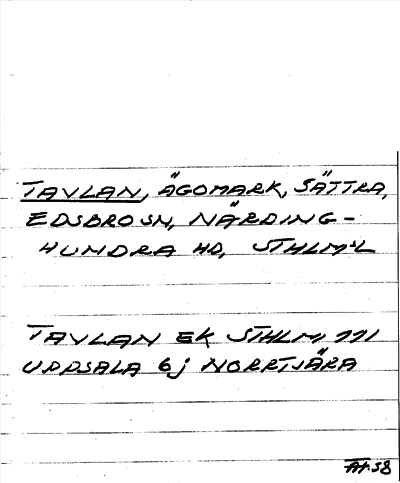 TAVLAN, ÄGOMARK, SÄTTRA,
EDSBRO SN, NÄRDING-
HUNDRA HD, STHLM'L
TAVLAN EK STHLM, 111
UPPSALA 6j NORRTJÄRA